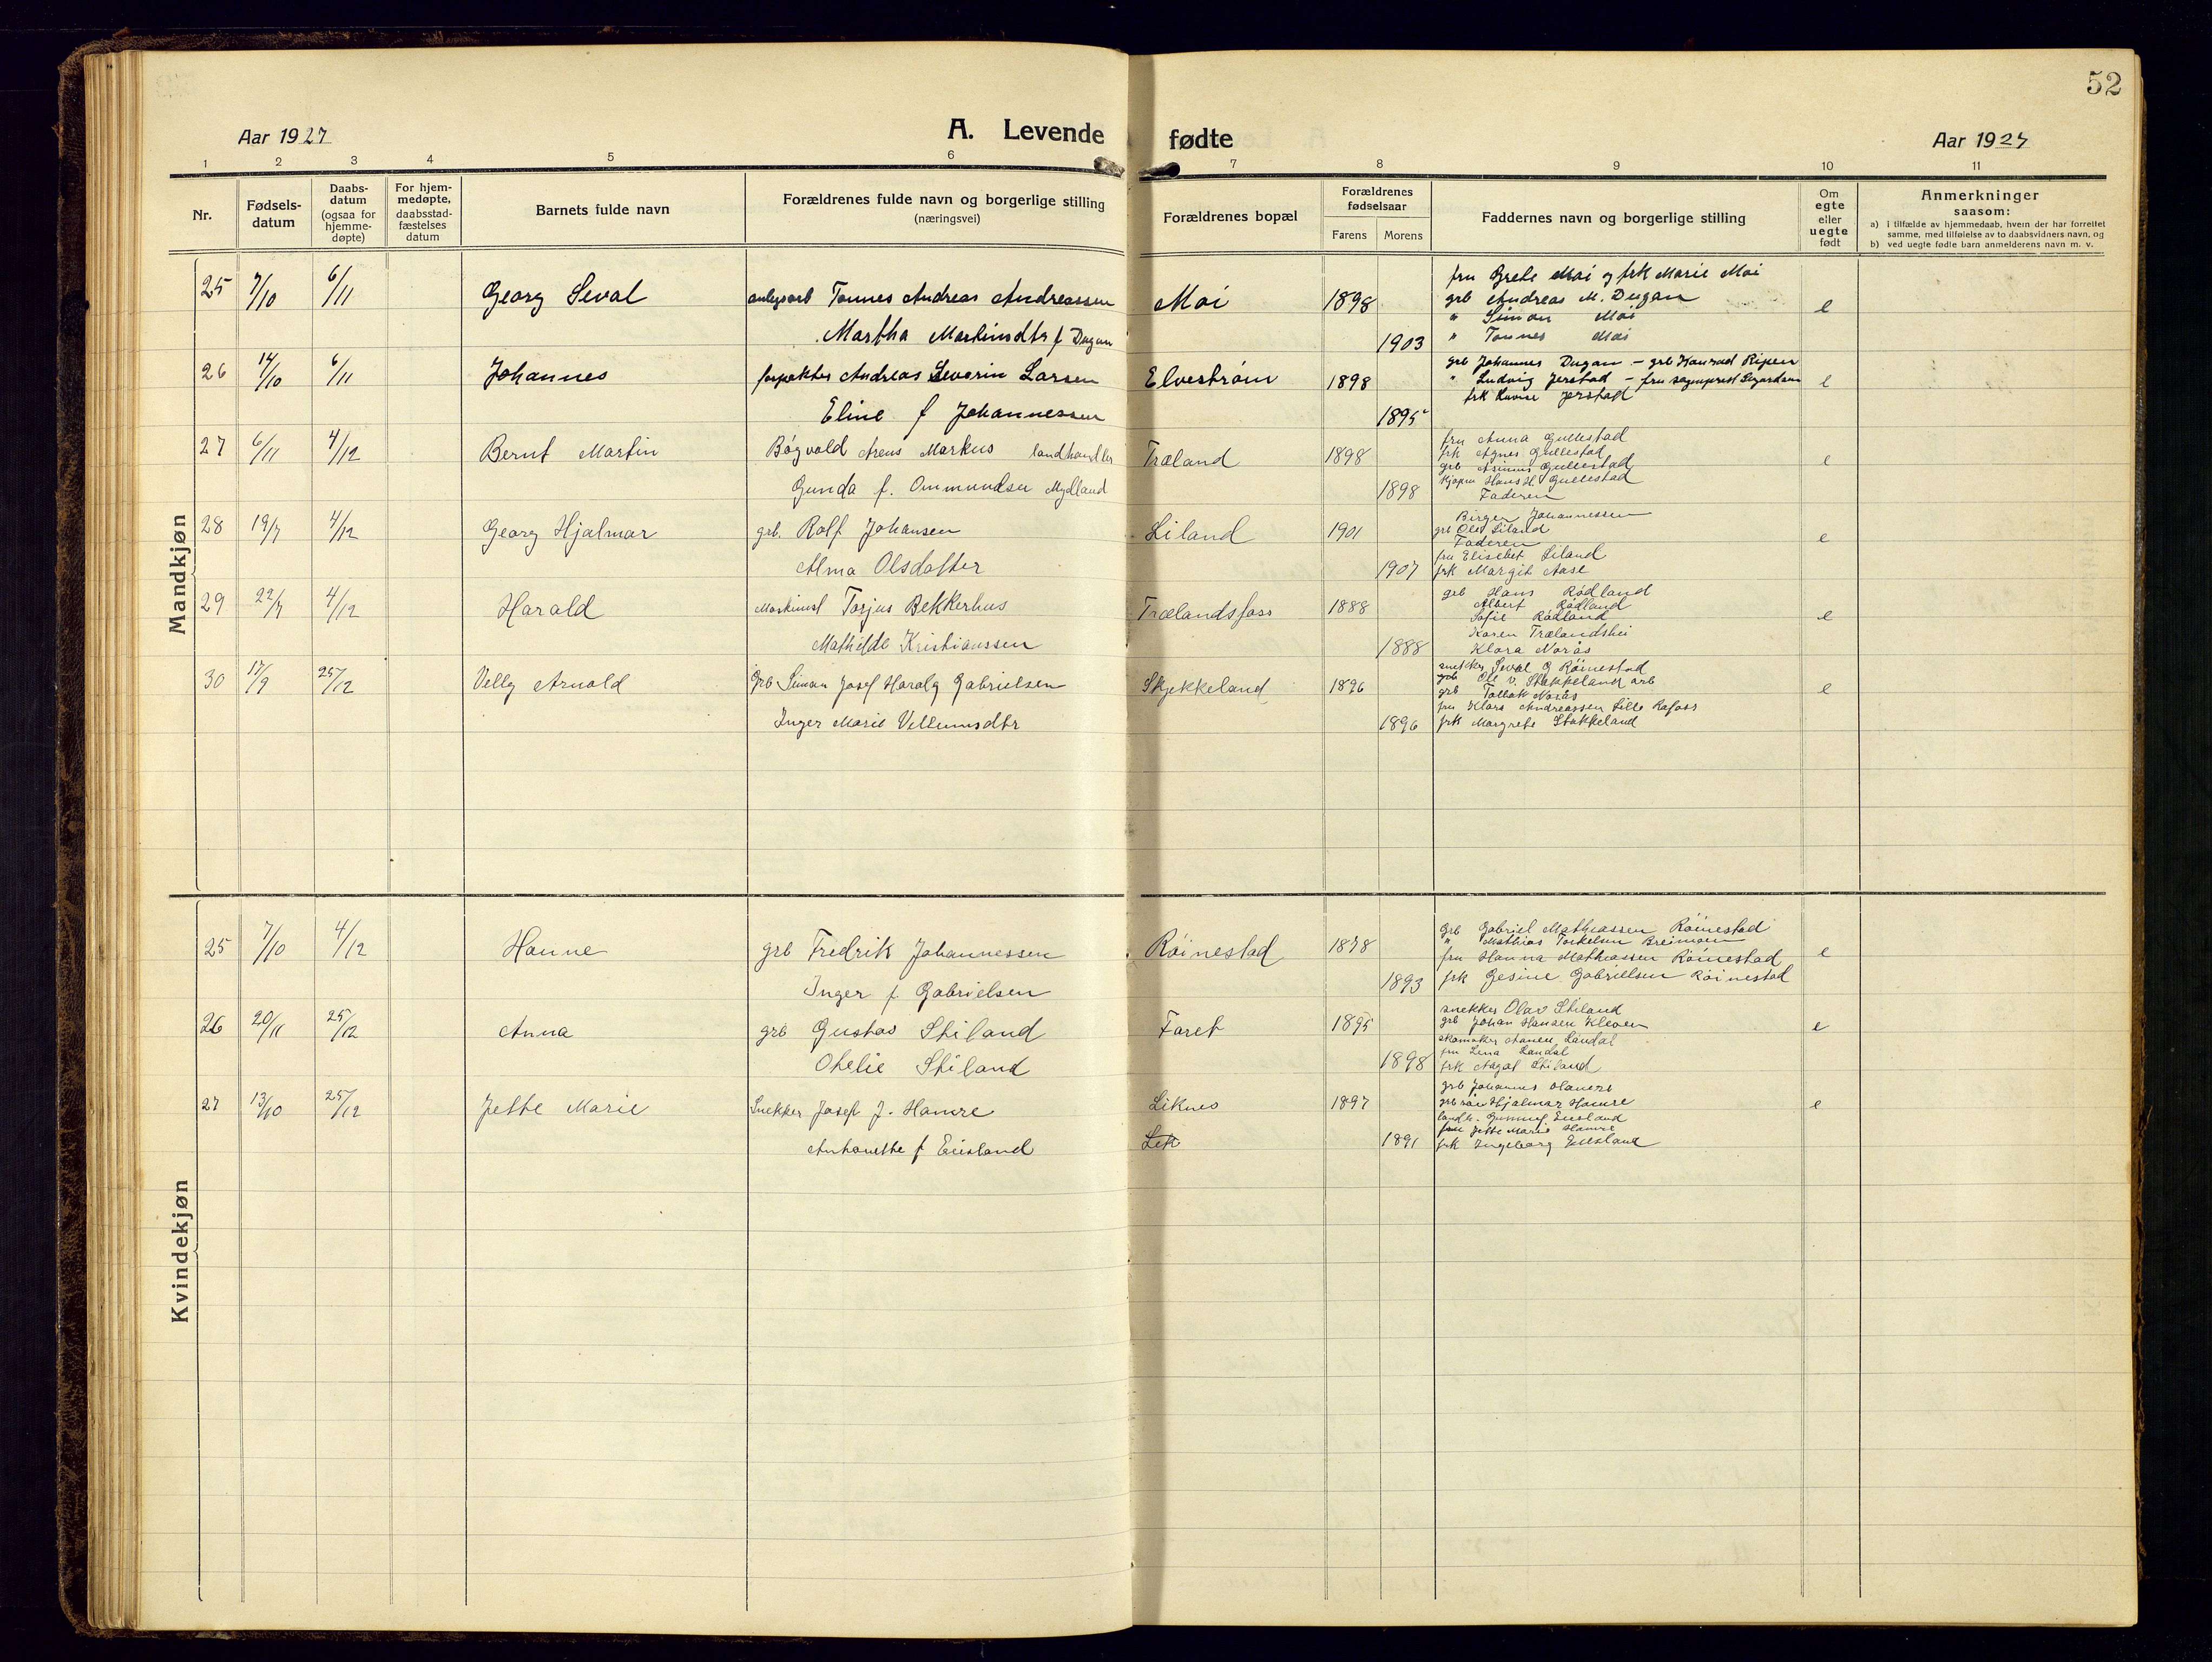 52
Aar 1927
A. Levende fødte
Aar 1927
1 2 3 4 5 6 7 8 9 10 11
Nr.
Fødsels-
datum
Daabs-
datum
(ogsaa for
hjemme-
døpte)
For hjem-
medøpte,
daabsstad-
fæstelses
datum
Barnets fulde navn
Forældrenes fulde navn og borgerlige stilling
(næringsvei)
Forældrenes bopæl
Forældrenes
fødselsaar
Farens Morens
Faddernes navn og borgerlige stilling
Om
egte
eller
uegte
født
Anmerkninger
saasom:
a) i tilfælde av hjemmedaab, hvem der har forrettet
samme, med tilføielse av to daabsvidners navn, og
b) ved uegte fødte barn anmelderens navn m. v.
Mandkjøn
25 7/10 6/11 Georg Seval
Tonnes Andreas Andreassen
Martha Martinsdtr f Dugan
Moi 1898
1903
fru Grete Moi og frk Marie Moi
grb Andreas M. Dugan
" Simon Moi
" Tonnes Moi
e
26 14/10 6/11 Johannes
Andreas Severin Larsen
Eline f Johannessen
Elvestrøm 1898
1895
grb Johannes Dugan - grb Konrad Ripen
" Ludvig Jerstad - fru
frk Jerstad
e
27 6/11 4/12 Bernt Martin
Bøgvald Arens Markus landhandler
Gunda f. Ommundsen Mydland
Træland 1898
1898
fru Anna Gullestad
frk Agnes Gullestad
grb Gullestad
Hans H. Gullestad
Faderen
e
28 19/7 4/12 Georg Hjalmar
grb. Rolf Johansen
Alma Olsdatter
Liland 1901
1907
Birger Johannessen
grb Ole Liland
Faderen
fru Elisebet Liland
frk Margit Aase
e
29 22/7 4/12 Harald
Maskinist Torjus Bekkerhus
Mathilde Kristianssen
Trælandsfoss 1888
1888
grb Hans Rødland
Albert Rødland
Sofie Rødland
Karen Trælandshei
Klara Norås
e
30 17/9 25/12 Velly Arnold
Grb Simon Josef Haralg Gabrielsen
Inger Marie Vellumsdtr
Skjekkeland 1896
1896
snekker Seval G Røinestad
grb Ole V. Stakkeland arb
grb Tallak Norås
fru Klara Andreassen Lille Rafoss
frk Margrete Stakkeland
e
Kvindekjøn
25 7/10 4/12 Hanne
grb Fredrik Johannessen
Inger f. Gabrielsen
Røinestad 1878
1893
Grb Gabriel Mathiassen Røinestad
" Mathias Torkelsen Breimoen
fru Hanna Mathiassen Røinestad
frk Gesine Gabrielsen Røinestad
e
26 20/11 25/12 Anna
grb Gustav Stiland
Otelie Stiland
Faret 1895
1898
snekker Olav Stiland
grb Johan Hansen Kleven
skomaker Landal
fru Lena Landal
frk Aagot Stiland
e
27 13/10 25/12 Jette Marie
Snekker Josef J. Hamre
Anthonette f Eiesland
Liknes 1897
Lik 1891
grb Johannes
grb Hjalmar Hamre
landh. Eiesland
fru Jette Marie Hamre
frk Ingeborg Eiesland
e